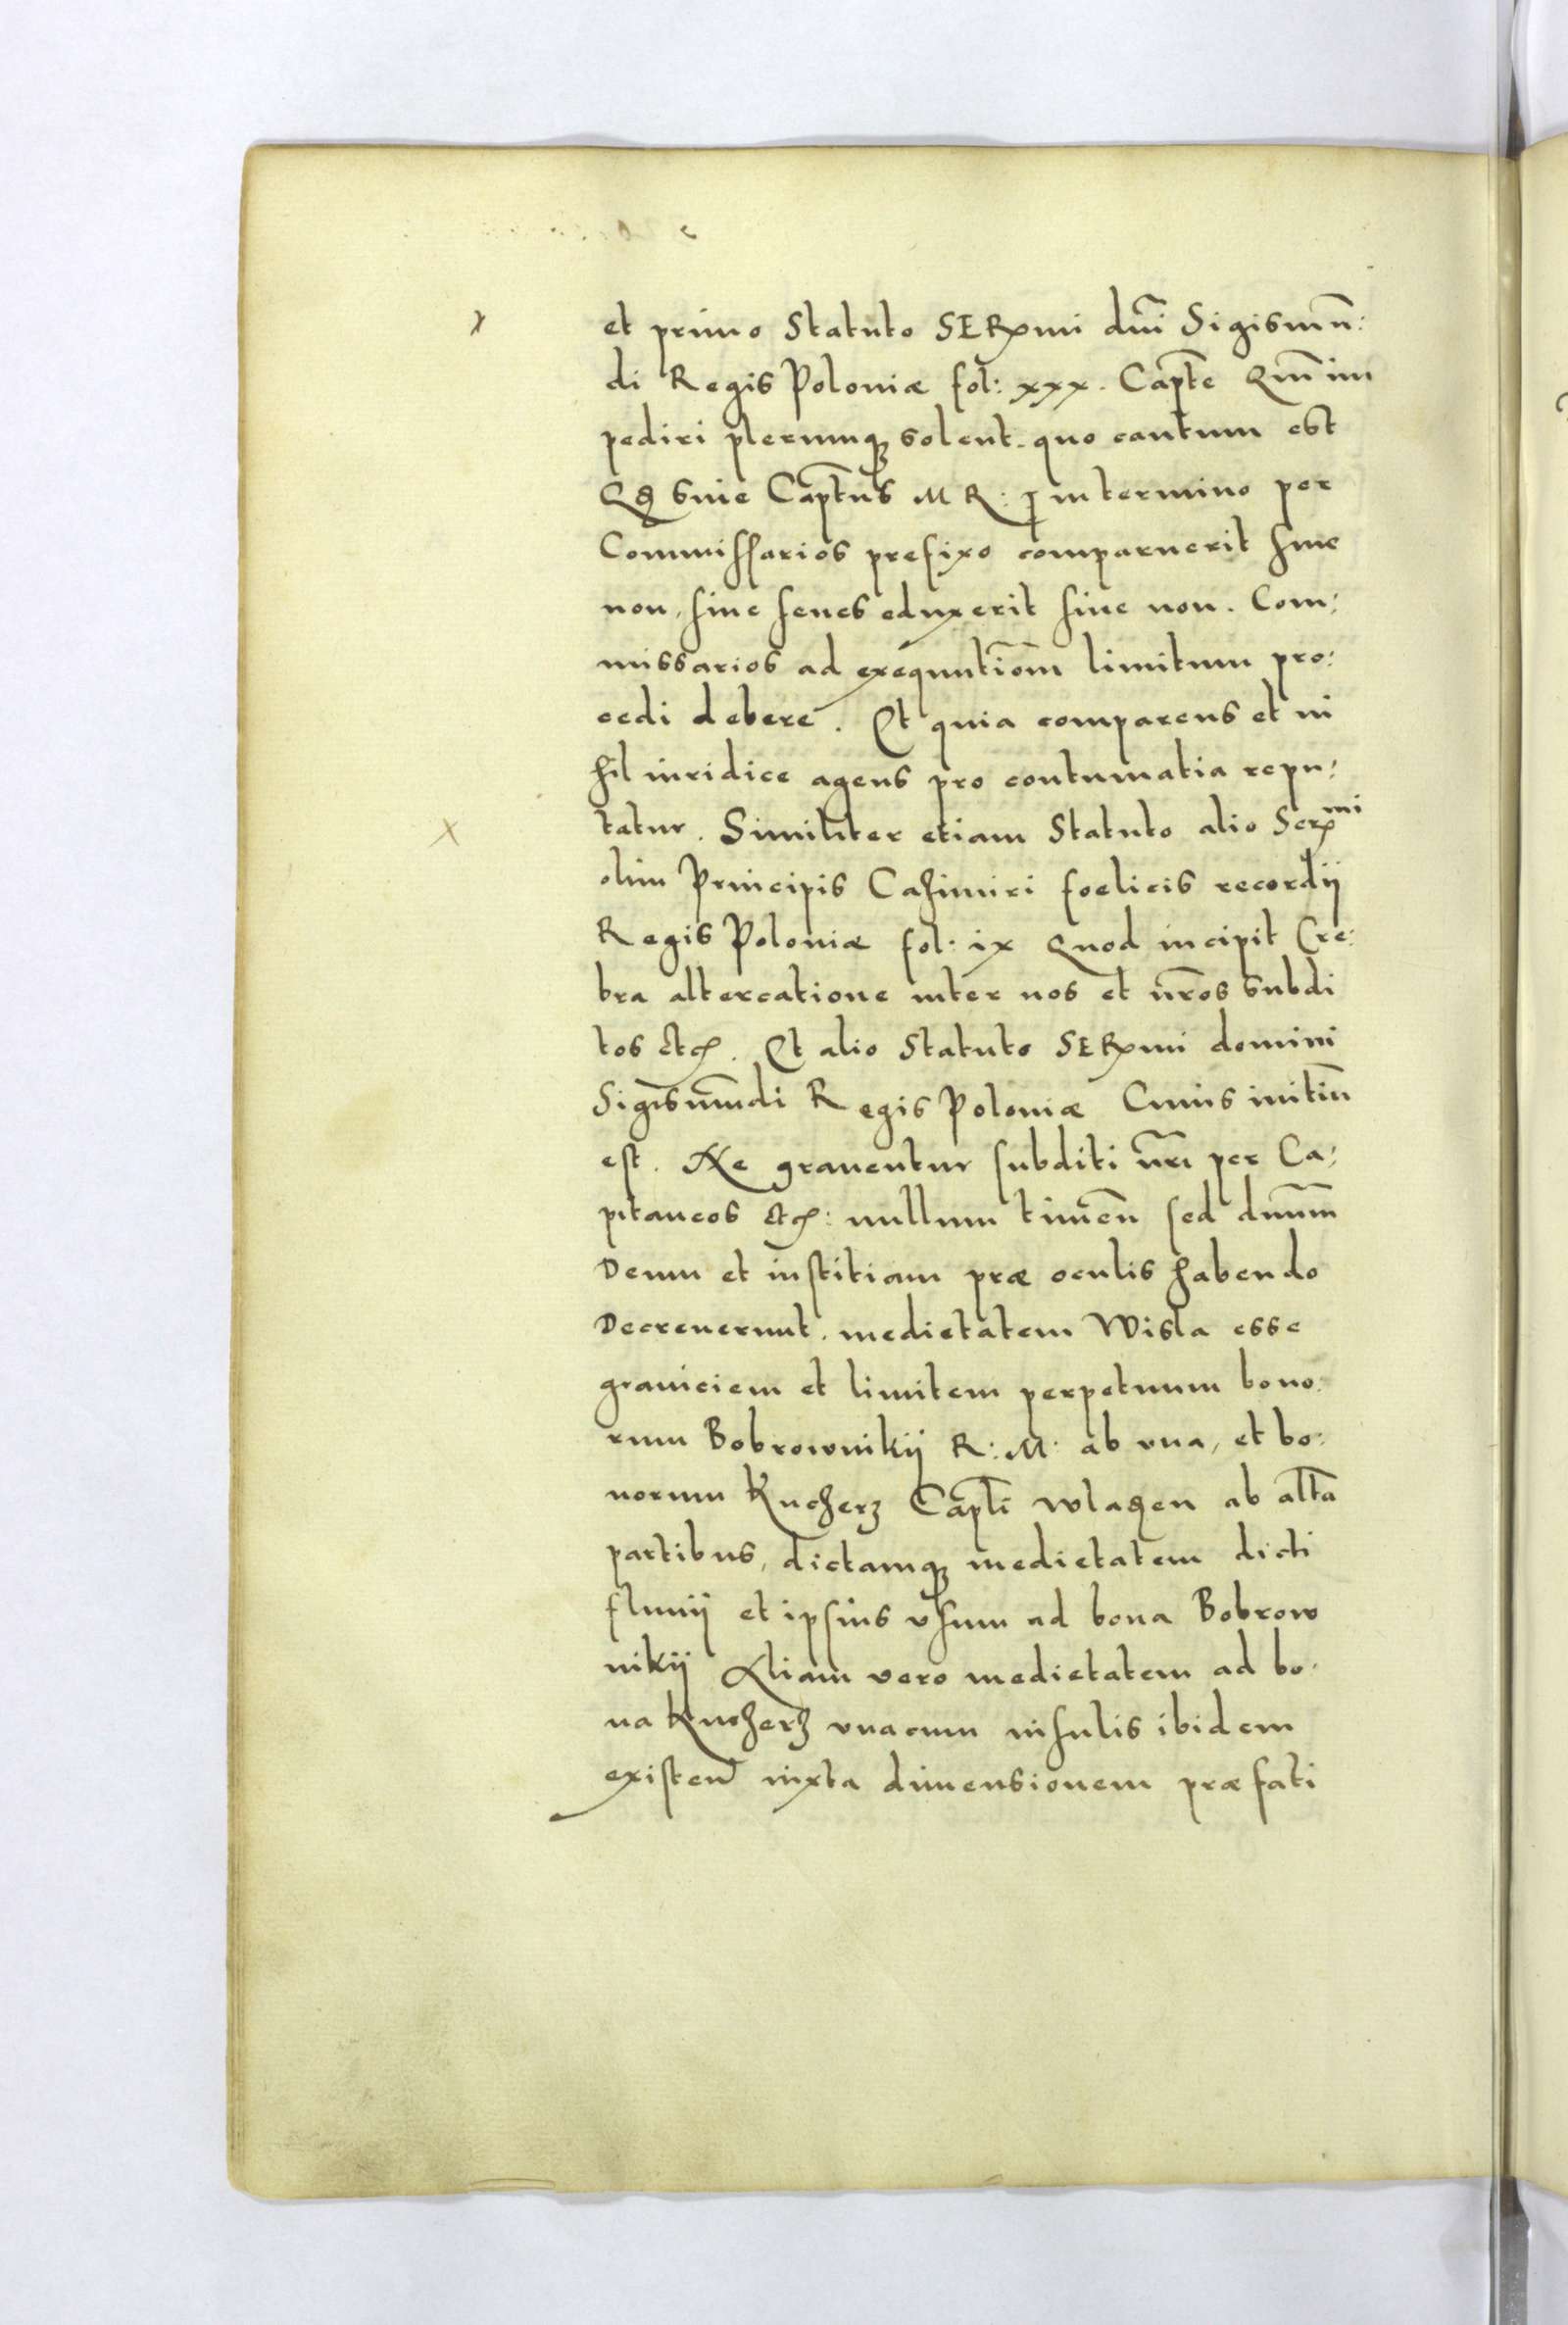 et primo Statuto SERxmi dni Sigismun:
di Regis Poloniæ fol: xxx. Capte Qm im
pediri plerumq; solent. quo cautum est
Qd siue Captus M R: in termino per
Commissarios prefixo comparuerit siue
non, siue senes eduxerit siue non. Com:
missarios ad exequutiom limitum pro:
cedi debere. Et quia comparens et ni
hil iuridice agens pro contumatia repu:
tatur. Similiter etiam Statuto alio Serxmi
olim Principis Casimiri foelicis recordij
Regis Poloniæ fol: ix Quod incipit Cre:
bra altercatione inter nos et nros subdi
tos etc. Et alio Statuto SERxmi domini
Sigismundi Regis Poloniæ Cuius initiu
est. Ne grauentur subditi nri per Ca:
pitaneos etc: nullum timen sed dnum
Deum et iustitiam præ oculis habendo
Decreuerunt. medietatem Wisla esse
graniciem et limitem perpetuum bono:
rum Bobrownikij R: M: ab vna, et bo:
norum Kucherz Capli wladen ab alta
partibus, dictamq; medietatem dicti
fluuij et ipsius vsum ad bona Bobrow
nikij Aliam vero medietatem ad bo:
na Kucherz vnacum insulis ibidem
existen iuxta dimensionem præfati